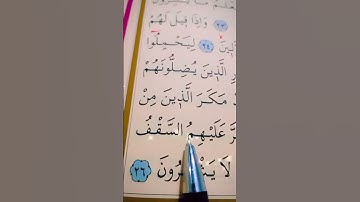 مَا
﴿٢٣﴾ وَإِذَا قِيلَ لَهُمْ
﴿٢٤﴾ لِيَحْمِلُوا
الَّذِينَ يُضِلُّونَهُمْ
مَكَرَ الَّذِينَ مِنْ
عَلَيْهِمُ السَّقْفُ
لَا ﴿٢٦﴾